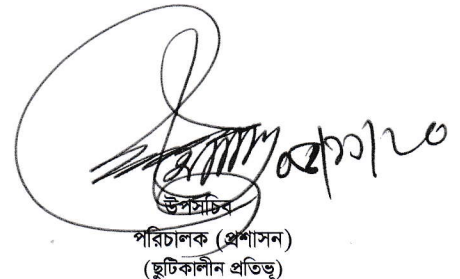 ০২/১১/২০
উপসচিব
পরিচালক (প্রশাসন)
(ছুটিকালীন প্রতিভূ)